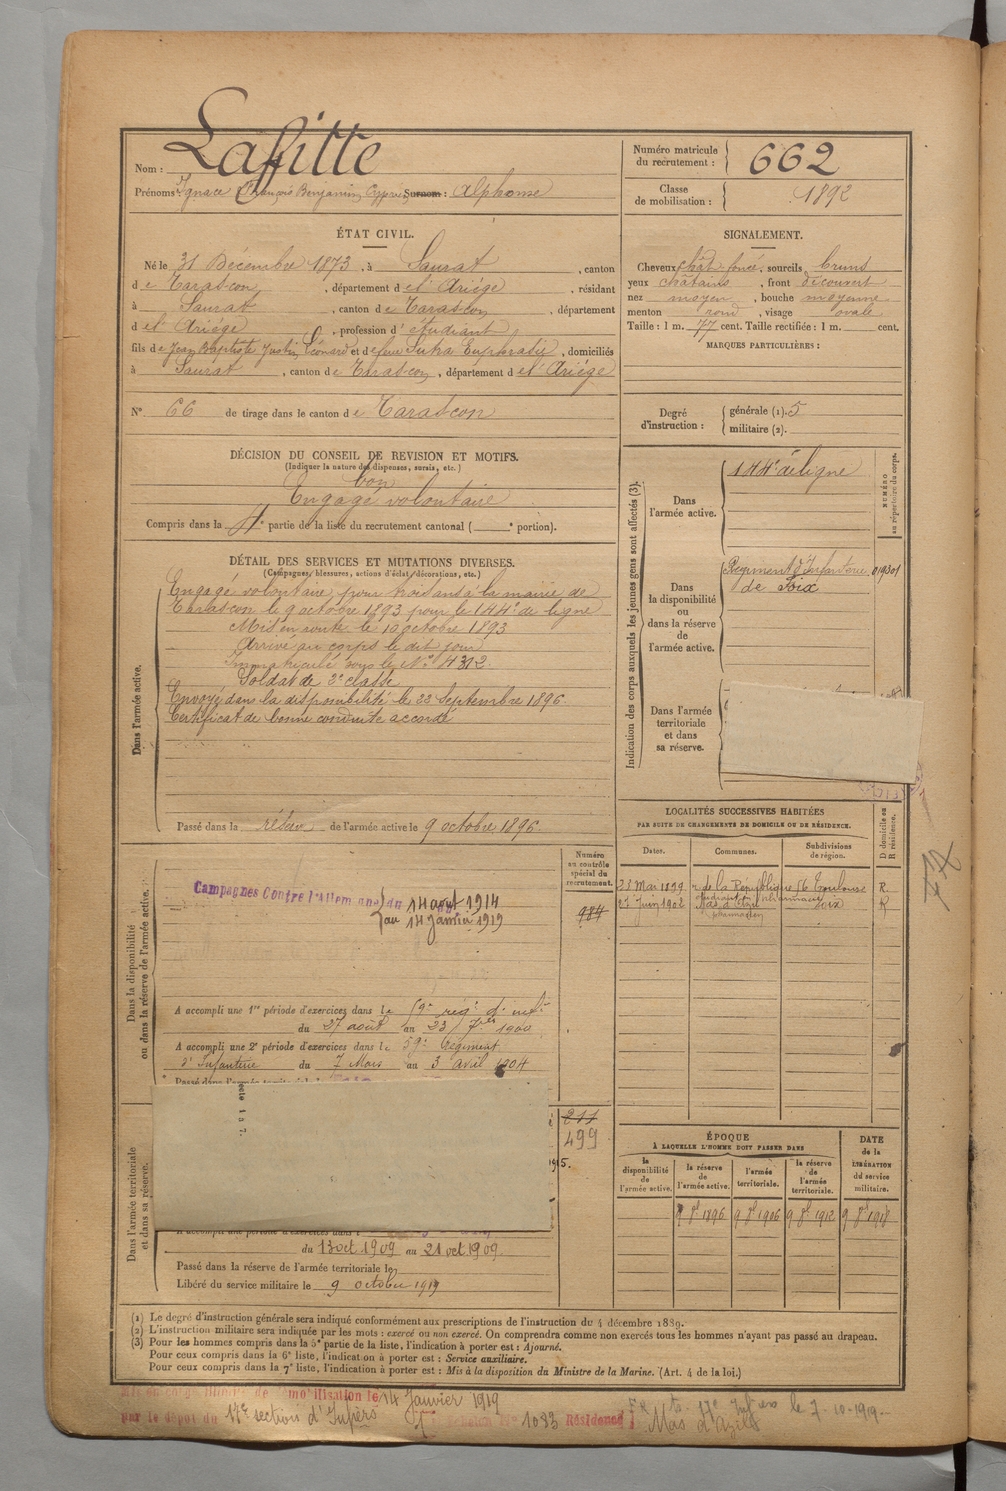 Nom : Laffitte
Prénoms : Ignace François Benjamin Cyprien Surnom : Alphonse
Numéro matricule du recrutement : 662
Classe de mobilisation : 1892
ÉTAT CIVIL.
Né le 31 Décembre 1873, à Saurat, canton
de Tarascon, département de l'Ariége, résidant
à Saurat, canton de Tarascon, département
de l'Ariége, profession d'étudiant
fils de Jean Baptiste Justin Léonard et de feue Euphrasie, domiciliés
à Saurat, canton de Tarascon, département de l'Ariége
N° 66 de tirage dans le canton de Tarascon
SIGNALEMENT.
Cheveux chât. foncé, sourcils bruns
yeux châtains, front découvert
nez moyen, bouche moyenne
menton rond, visage ovale
Taille : 1 m. 77 cent. Taille rectifiée : 1 m. cent.
MARQUES PARTICULIÈRES :
Degré d'instruction : générale (1). 5
militaire (2).
DÉCISION DU CONSEIL DE REVISION ET MOTIFS.
(Indiquer la nature des dispenses, sursis, etc.)
bon
Engagé volontaire
Compris dans la 4e partie de la liste du recrutement cantonal ( e portion).
DÉTAIL DES SERVICES ET MUTATIONS DIVERSES.
(Campagnes, blessures, actions d'éclat, décorations, etc.)
Dans l'armée active.
Engagé volontaire pour trois ans à la mairie de
Tarascon le 9 octobre 1893 pour le 144e de ligne
Mis en route le 10 octobre 1893
Arrivé au corps le dit jour
Immatriculé sous le N° 4312.
Soldat de 2e classe
Envoyé dans la disponibilité le 22 Septembre 1896.
Certificat de bonne conduite accordé
Passé dans la réserve de l'armée active le 9 octobre 1896.
Indication des corps auxquels les jeunes gens sont affectés (3).
NUMÉRO au répertoire du corps.
Dans l'armée active.
144e de ligne
Dans la disponibilité ou dans la réserve de l'armée active.
Régiment d'Infanterie 019301
de Foix
Dans l'armée territoriale et dans sa réserve.
LOCALITÉS SUCCESSIVES HABITÉES
PAR SUITE DE CHANGEMENTS DE DOMICILE OU DE RÉSIDENCE.
D domicile ou R résidence.
Dates. Communes. Subdivisions de région.
28 Mai 1899 r. de la République 56 Toulouse R.
étudiant en pharmacie
27 Juin 1902 Mas d'Azil Foix R
pharmacien
Dans la disponibilité ou dans la réserve de l'armée active.
Numéro au contrôle spécial du recrutement.
984
Campagnes Contre l'Allemagne du 14 août 1914
au 14 janvier 1919
A accompli une 1re période d'exercices dans le 59e rég. d'inf.
du 27 août au 23 7bre 1900
A accompli une 2e période d'exercices dans le 59e Régiment
d'Infanterie du 7 Mars au 3 avril 1904
Dans l'armée territoriale et dans sa réserve.
211
499
1915.
du 13 oct 1909 au 21 oct 1909.
Passé dans la réserve de l'armée territoriale le
Libéré du service militaire le 9 octobre 1919
ÉPOQUE
À LAQUELLE L'HOMME DOIT PASSER DANS
la disponibilité de l'armée active.
la réserve de l'armée active.
l'armée territoriale.
la réserve de l'armée territoriale.
DATE de la LIBÉRATION du service militaire.
9 8bre 1896 9 8bre 1906 9 8bre 1912 9 8bre 1918
(1) Le degré d'instruction générale sera indiqué conformément aux prescriptions de l'instruction du 4 décembre 1889.
(2) L'instruction militaire sera indiquée par les mots : exercé ou non exercé. On comprendra comme non exercés tous les hommes n'ayant pas passé au drapeau.
(3) Pour les hommes compris dans la 5e partie de la liste, l'indication à porter est : Ajourné.
Pour ceux compris dans la 6e liste, l'indication à porter est : Service auxiliaire.
Pour ceux compris dans la 7e liste, l'indication à porter est : Mis à la disposition du Ministre de la Marine. (Art. 4 de la loi.)
Mis en congé illimité de démobilisation le 14 Janvier 1919
par le dépôt du 17e section d'Infiers échelon N° 1083 Résidence
Mas d'Azil
le 7-10-1919.